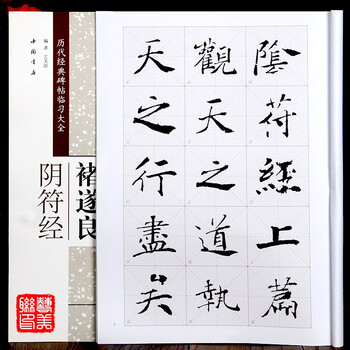 陰符經上篇
觀天之道執
天之行盡矣
历代经典碑帖临习大全
中国书店
褚遂良
阴符经